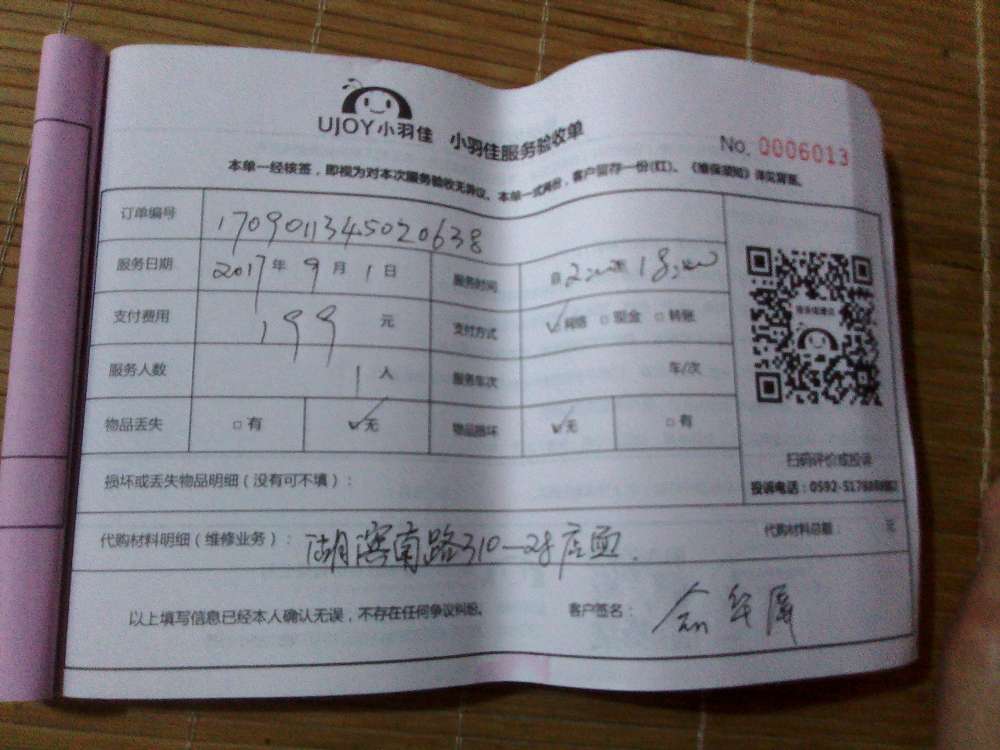 UJOY小羽佳 小羽佳服务验收单
No. 0006013
本单一经核签，即视为对本次服务验收无异议。本单一式两份，客户留存一份(红)。《维保须知》详见背面。
订单编号 1709011345020638
服务日期 2017年9月1日 服务时间 自 18:00
支付费用 199 元 支付方式 ✓网络 □现金 □转账
服务人数 1人 服务车次 车/次
物品丢失 □有 ✓无 物品损坏 ✓无 □有
扫码评价或投诉
损坏或丢失物品明细(没有可不填)：
投诉电话：0592-5178
代购材料明细(维修业务)：湖滨南路310-28店面. 代购材料总额 元
以上填写信息已经本人确认无误，不存在任何争议纠纷。 客户签名：